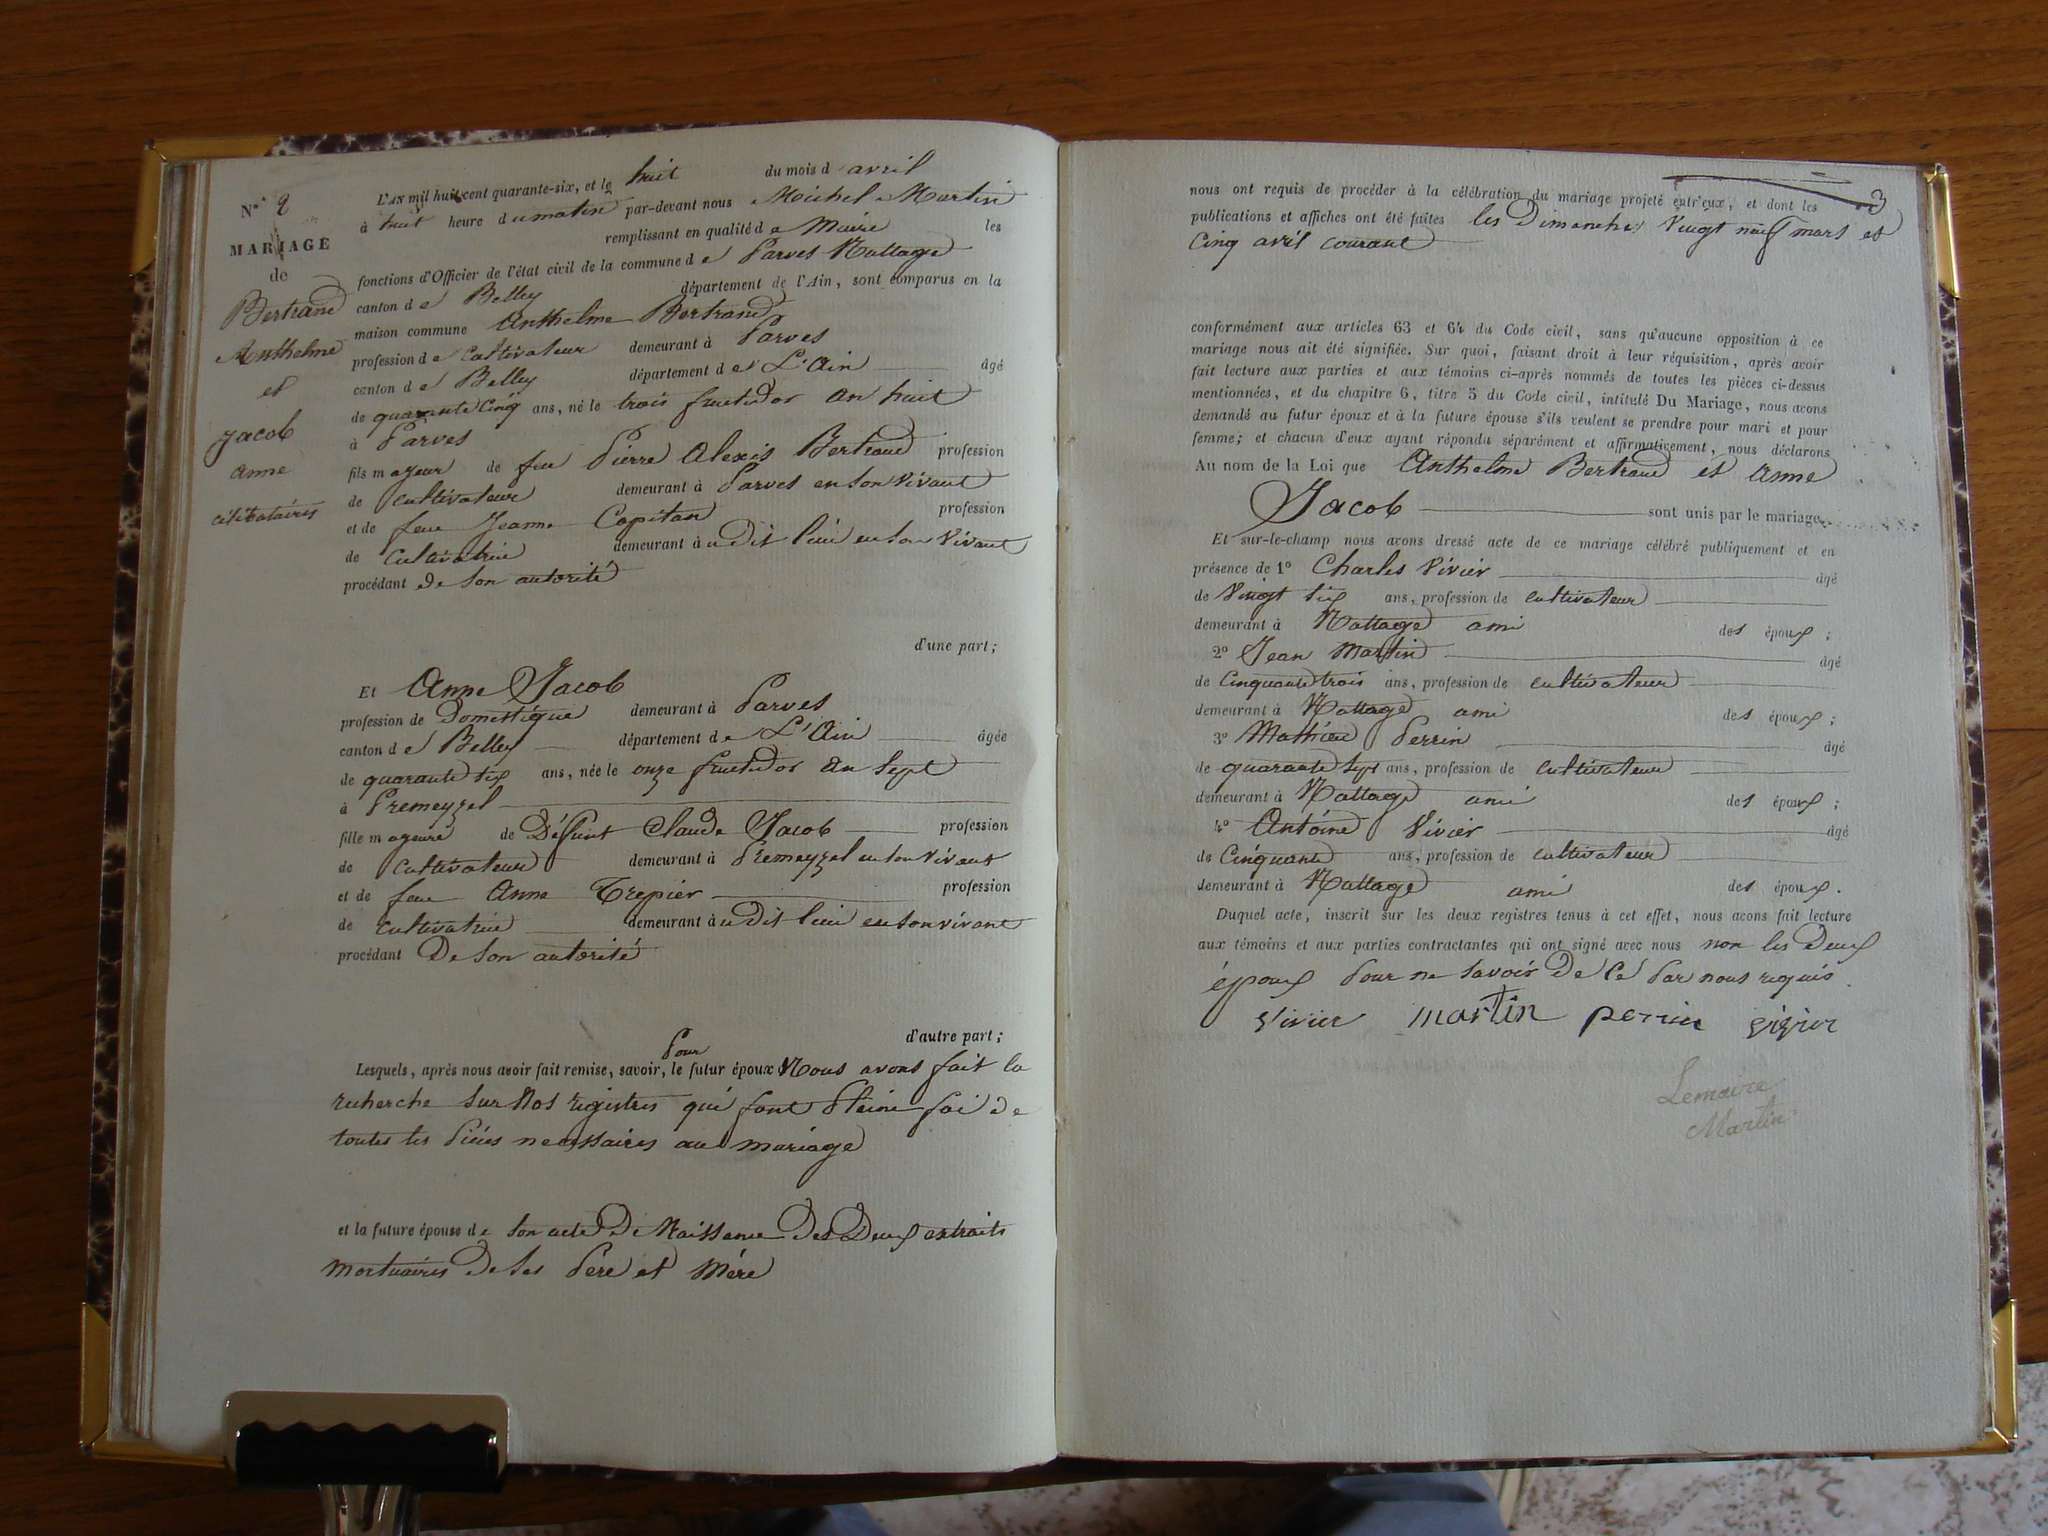 N° 2
MARIAGE
de
Bertrand
Anthelme
et
Jacob
anne
célibataires
L'AN mil huit cent quarante-six, et le huit du mois d avril
à huit heure du matin par-devant nous Michel Martin
remplissant en qualité de Maire les
fonctions d'Officier de l'état civil de la commune de Parves Nattage
canton de Belley département de l'Ain, sont comparus en la
maison commune Anthelme Bertrand
profession de cultivateur demeurant à Parves
canton de Belley département de L'Ain âgé
de quarante cinq ans, né le trois fructidor an huit
à Parves
fils mageur de feu Pierre Alexis Bertrand profession
de cultivateur demeurant à Parves en son vivant
et de feue Jeanne Capitan profession
de cultivatrice demeurant à u dit lieu en son vivant
procédant de son autorité
d'une part;
Et Anne Jacob
profession de Domestique demeurant à Parves
canton de Belley département de L'Ain âgée
de quarante six ans, née le onze fructidor an sept
à Premeyzel
fille mageure de Défunt Claude Jacob profession
de cultivateur demeurant à Premeyzel en son vivant
et de feue Anne Trepier profession
de cultivatrice demeurant à u dit lieu en son vivant
procédant De son autorité
d'autre part;
Pour
Lesquels, après nous avoir fait remise, savoir, le futur époux Nous avons fait la
recherche sur Nos registres qui font Pleine foi de
toutes les Pièces necessaires au mariage
et la future épouse de son acte De Naissance Des Deux extraits
mortuaires De ses Père et Mère
3
nous ont requis de procéder à la célébration du mariage projeté entr'eux, et dont les
publications et affiches ont été faites les Dimanches Vingt neuf mars et
Cinq avril courant
conformément aux articles 63 et 64 du Code civil, sans qu'aucune opposition à ce
mariage nous ait été signifiée. Sur quoi, faisant droit à leur réquisition, après avoir
fait lecture aux parties et aux témoins ci-après nommés de toutes les pièces ci-dessus
mentionnées, et du chapitre 6, titre 5 du Code civil, intitulé Du Mariage, nous avons
demandé au futur époux et à la future épouse s'ils veulent se prendre pour mari et pour
femme; et chacun d'eux ayant répondu séparément et affirmativement, nous déclarons
Au nom de la Loi que Anthelme Bertrand et Anne
Jacob sont unis par le mariage.
Et sur-le-champ nous avons dressé acte de ce mariage célébré publiquement et en
présence de 1° Charles Vivier âgé
de Vingt six ans, profession de cultivateur
demeurant à Nattage ami des époux;
2° Jean Martin âgé
de Cinquante trois ans, profession de cultivateur
demeurant à Nattage ami des époux;
3° Mathieu Perrin âgé
de quarante sept ans, profession de cultivateur
demeurant à Nattage ami des époux;
4° Antoine Vivier âgé
de Cinquante ans, profession de cultivateur
demeurant à Nattage ami des époux.
Duquel acte, inscrit sur les deux registres tenus à cet effet, nous avons fait lecture
aux témoins et aux parties contractantes qui ont signé avec nous non les Deux
époux Pour ne savoir De Ce Par nous requis.
Vivier martin perrin vivier
Lemaire
Martin